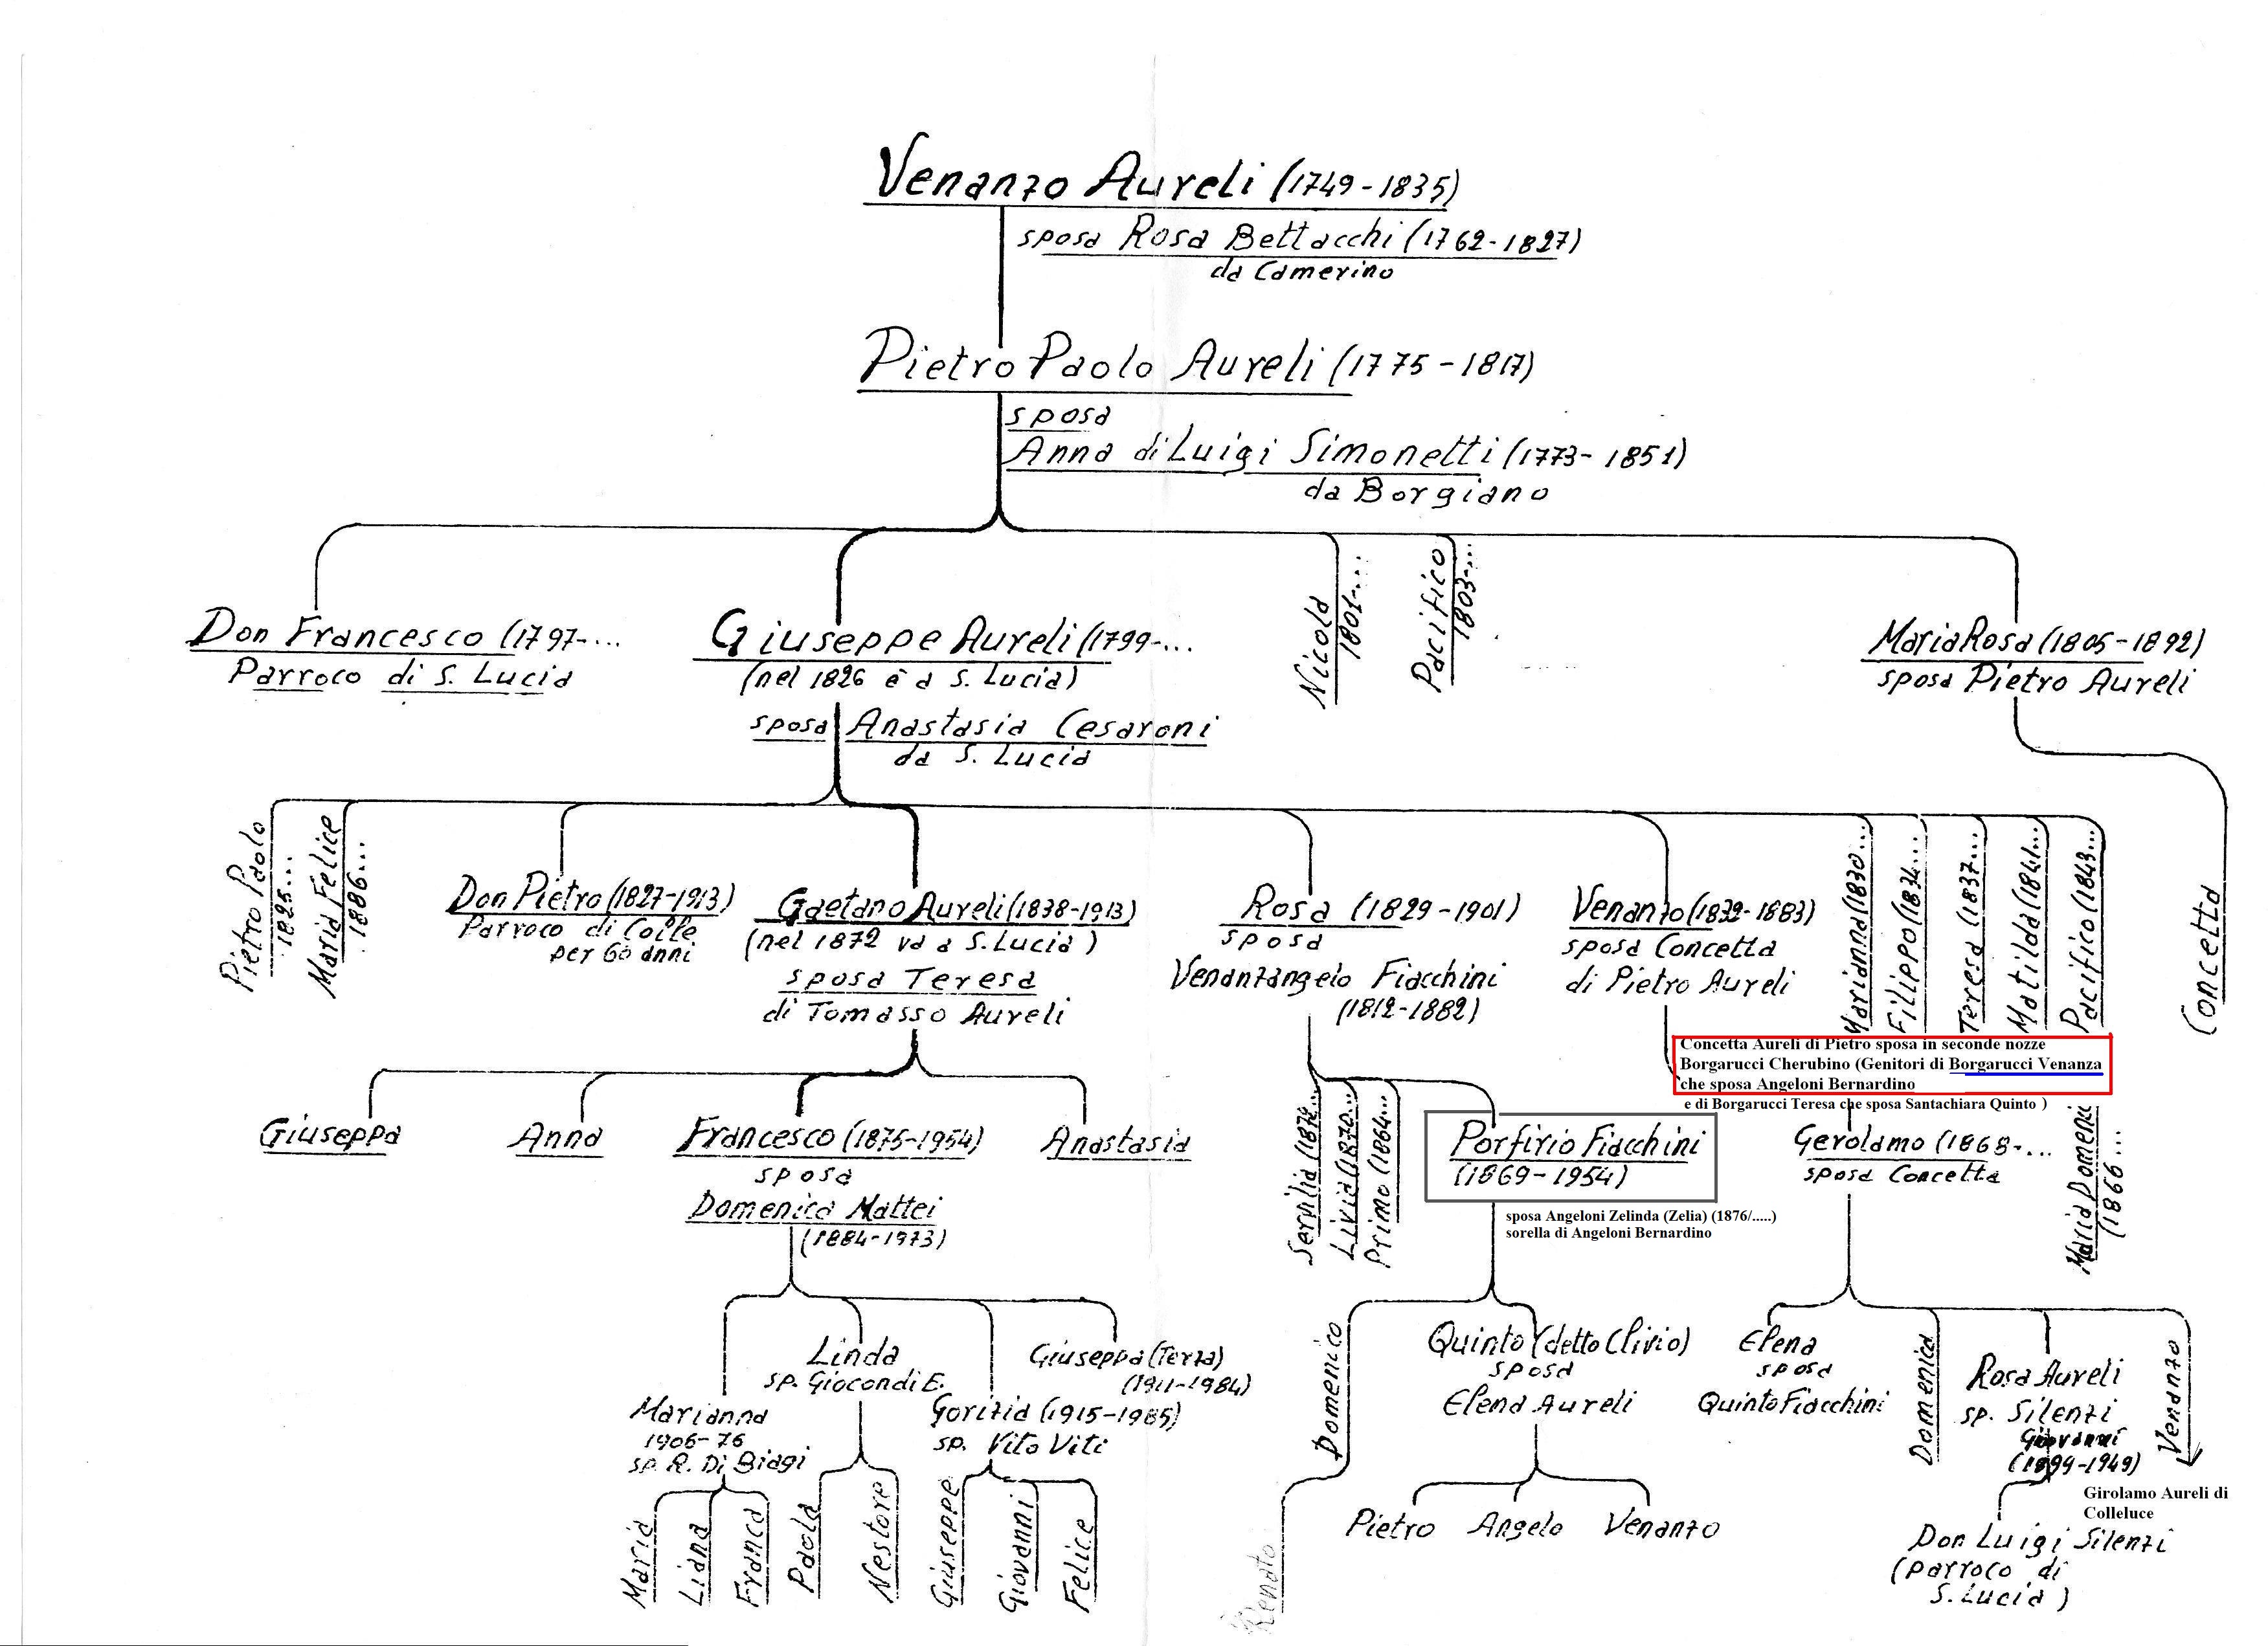 Venanzo Aureli (1749-1835)
sposa Rosa Bettacchi (1762-1827)
da Camerino
Pietro Paolo Aureli (1775-1817)
sposa
Anna di Luigi Simonetti (1773-1851)
da Borgiano
Don Francesco (1797-...
Parroco di S. Lucia
Giuseppe Aureli (1799-...
(nel 1826 è a S. Lucia)
sposa Anastasia Cesaroni
da S. Lucia
Nicola
1801-...
Pacifico
1803-...
MariaRosa (1805-1892)
sposa Pietro Aureli
Pietro Paolo
1825...
Maria Felice
1886...
Don Pietro (1827-1913)
Parroco di Colle
per 60 anni
Gaetano Aureli (1838-1913)
(nel 1872 va a S. Lucia)
sposa Teresa
di Tomasso Aureli
Rosa (1829-1901)
sposa
Venanzangelo Fiacchini
(1812-1882)
Venanzo (1832-1883)
sposa Concetta
di Pietro Aureli
Marianna (1830...
Filippo (1834...
Teresa (1837...
Matilda (1841...
Pacifico (1843...
Concetta
Concetta Aureli di Pietro sposa in seconde nozze
Borgarucci Cherubino (Genitori di Borgarucci Venanza
che sposa Angeloni Bernardino
e di Borgarucci Teresa che sposa Santachiara Quinto )
Giuseppa
Anna
Francesco (1875-1954)
sposa
Domenica Mattei
(1884-1973)
Anastasia
Servilia (1872...
Livia (1870...
Primo (1864...
Porfirio Fiacchini
(1869-1954)
sposa Angeloni Zelinda (Zelia) (1876/.....)
sorella di Angeloni Bernardino
Gerolamo (1868-...
sposa Concetta
Maria Domeni
(1866...
Marianna
1906-76
sp. R. Di Biagi
Linda
sp. Giocondi E.
Gorizia (1915-1985)
sp. Vito Viti
Giuseppa (Terza)
(1911-1984)
Domenico
Quinto (detto Clivio)
sposa
Elena Aureli
Elena
sposa
Quinto Fiacchini
Domenica
Rosa Aureli
sp. Silenzi
Giovanni
(1899-1949)
Venanzo
Girolamo Aureli di
Colleluce
Maria
Liana
Franca
Paola
Nestore
Giuseppe
Giovanni
Felice
Renato
Pietro Angelo Venanzo
Don Luigi Silenzi
(parroco di
S. Lucia)